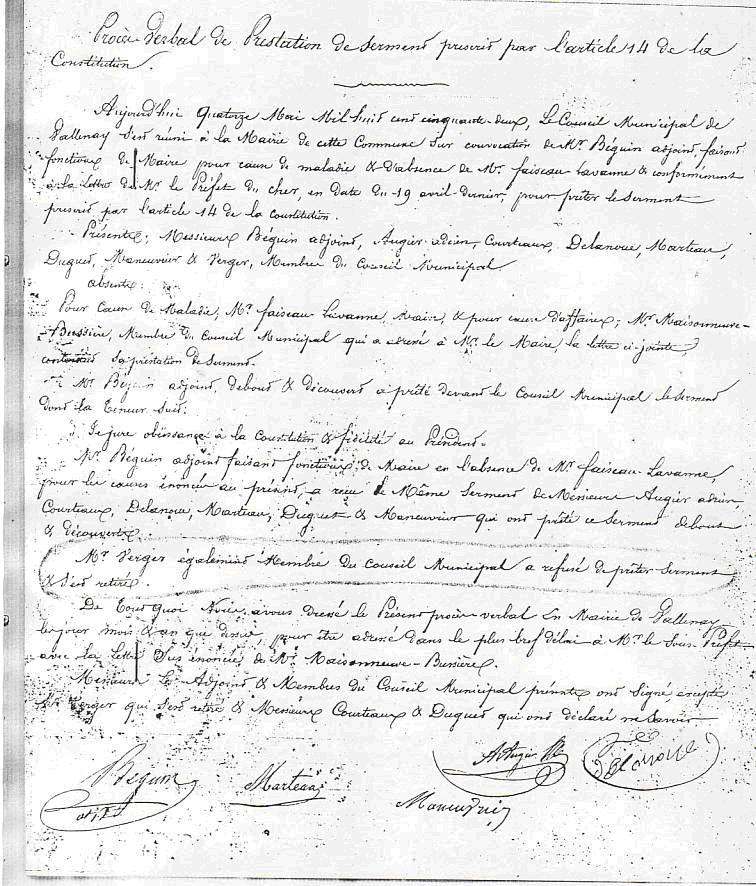 Procès-Verbal de Prestation de Serment prescrit par l'article 14 de la
Constitution.
Aujourd'hui quatorze Mai Mil huit cent cinquante-deux, Le Conseil Municipal de
Vallenay s'est réuni à la Mairie de cette Commune sur convocation de Mr Béguin adjoint, faisant
fonctions de Maire pour cause de maladie & d'absence de Mr faiseau-Lavanne & conformément
à la lettre de Mr le Préfet du cher, en date du 19 avril dernier, pour prêter le Serment
prescrit par l'article 14 de la Constitution.
Présents; Messieurs Béguin adjoint, Augier-adrien, Courteaux, Delanoue, Marteau,
Duguet, Maneuvrier & Verger, Membres du Conseil Municipal.
absents:
Pour cause de Maladie, Mr faiseau-Lavanne, maire, & pour cause d'affaires; Mr Maisonneuve-
Bussière, Membre du Conseil Municipal qui a adressé à Mr le Maire, la lettre ci-jointe,
contenant sa prestation de Serment.
Mr Béguin adjoint, debout & découvert a prêté devant le Conseil Municipal le Serment
dont la teneur suit:
Je jure obéissance à la Constitution & fidélité au Président.
Mr Béguin adjoint faisant fonctions de Maire en l'absence de Mr faiseau-Lavanne,
pour les causes énoncées au présent, a reçu le Même Serment de Messieurs Augier adrien,
Courteaux, Delanoue, Marteau, Duguet & Maneuvrier qui ont prêté ce Serment debout
& découverts.
Mr Verger également Membre du Conseil Municipal a refusé de prêter Serment
& s'est retiré.
De tout quoi Nous avons dressé le Présent procès-verbal En Mairie de Vallenay
les jour mois & an que dessus, pour être adressé dans le plus bref délai à Mr le Sous-Préfet
avec la Lettre sus énoncée de Mr Maisonneuve-Bussière.
Messieurs les Adjoint & Membres du Conseil Municipal présents ont signé, excepté
Mr Verger qui s'est retiré & Messieurs Courteaux & Duguet qui ont déclaré ne Savoir
Béguin
adjt
Marteau
A Augier
Delanoue
Maneuvrier